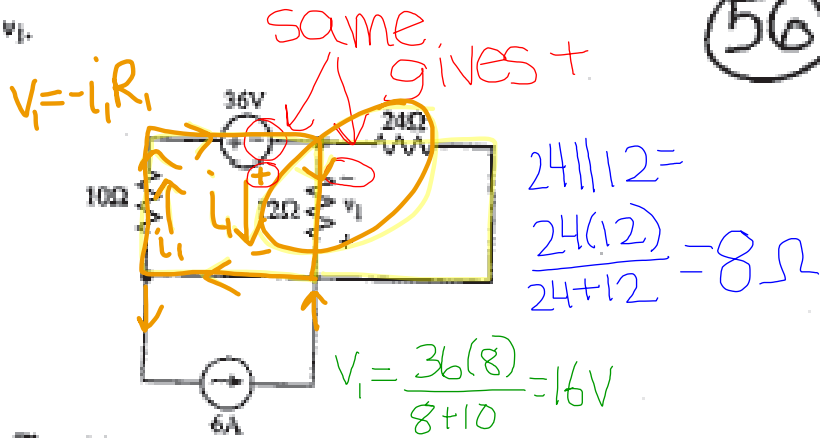 v₁.
56
same
gives +
V₁=-i₁R₁
36V
+ -
24Ω
+
-
10Ω
i₁
i₁
2Ω
v₁
-
+
24||12=
24(12)
24+12
=8Ω
V₁=
36(8)
8+10
=16V
6A